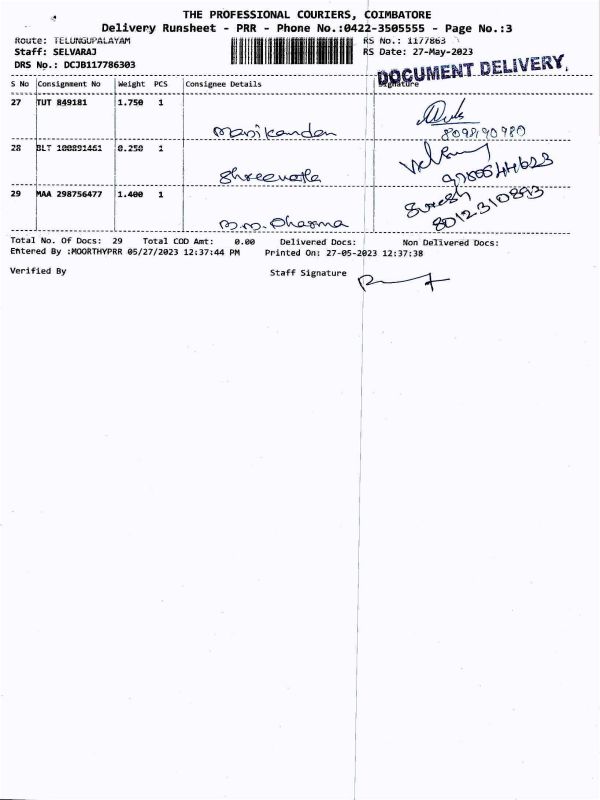 THE PROFESSIONAL COURIERS, COIMBATORE
Delivery Runsheet - PRR - Phone No.:0422-3505555 - Page No.:3
Route: TELUNGUPALAYAM RS No.: 1177863
Staff: SELVARAJ RS Date: 27-May-2023
DRS No.: DCJB117786303
DOCUMENT DELIVERY.
S No Consignment No Weight PCS Consignee Details Signature
27 TUT 849181 1.750 1
Manikandan
28 BLT 100891461 0.250 1
29 MAA 298756477 1.400 1 Suresh
M.M. Dharma 8012310893
Total No. Of Docs: 29 Total COD Amt: 0.00 Delivered Docs: Non Delivered Docs:
Entered By :MOORTHYPRR 05/27/2023 12:37:44 PM Printed On: 27-05-2023 12:37:38
Verified By Staff Signature